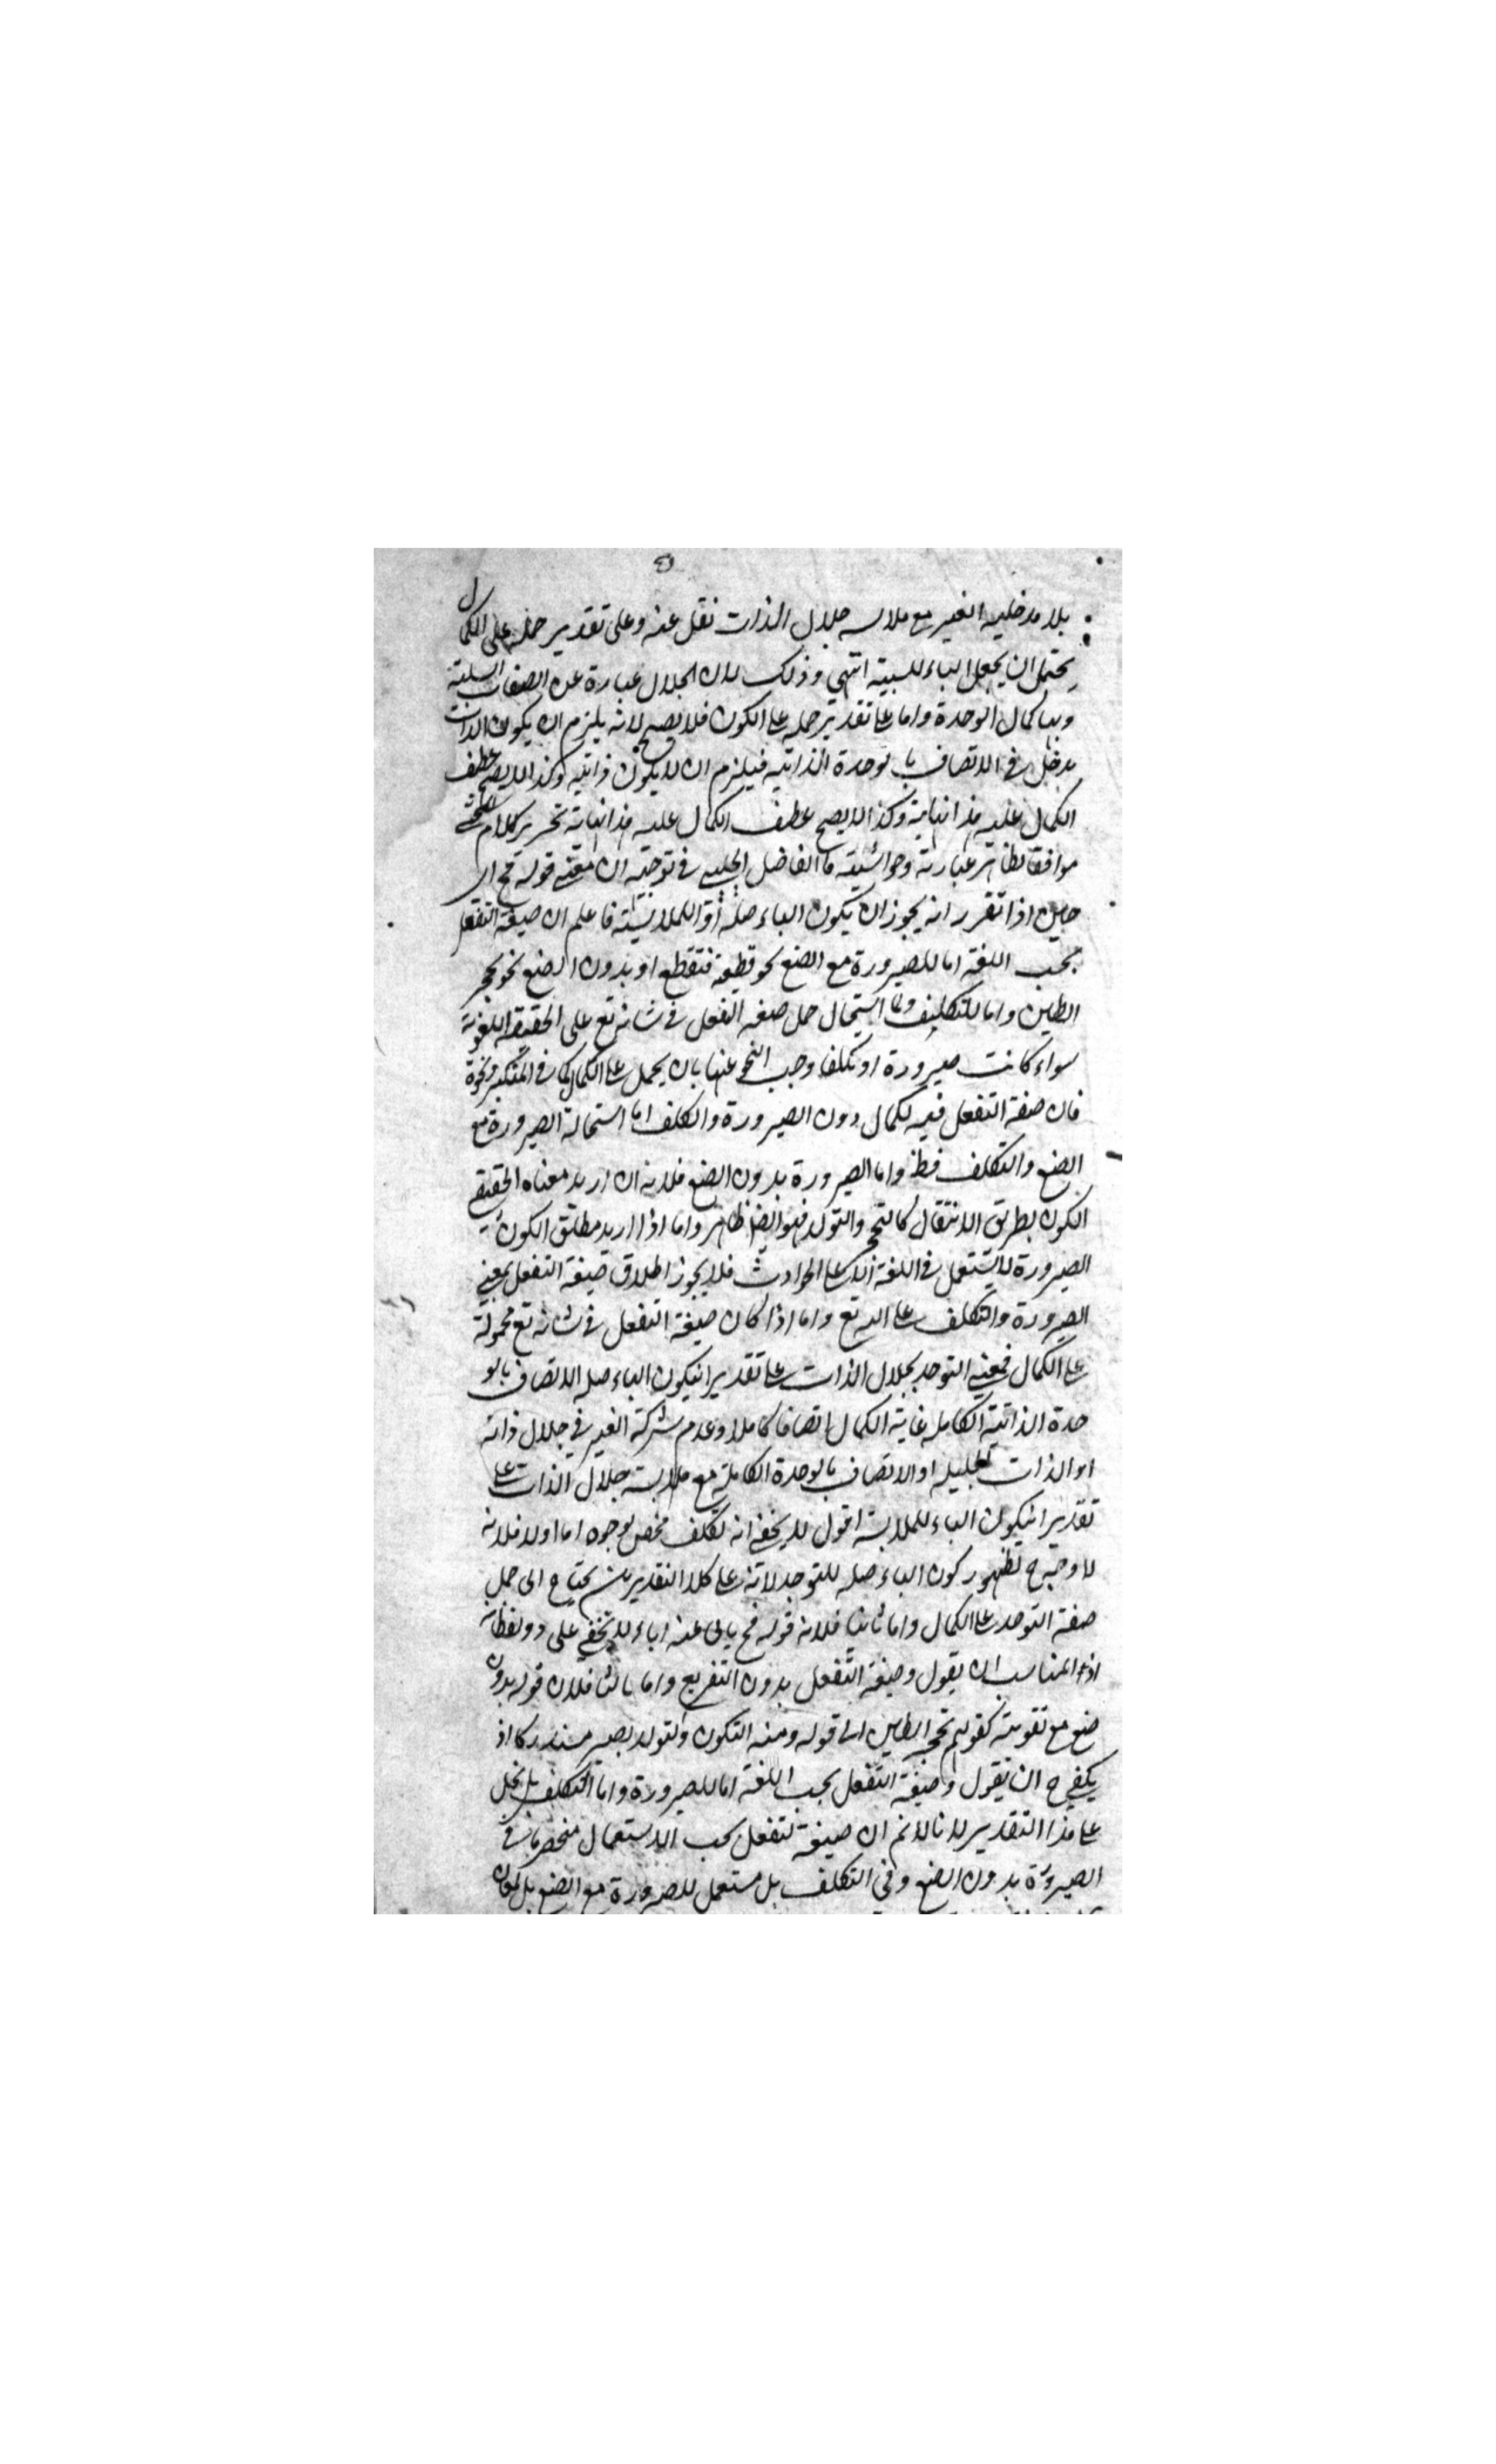 بلا مدخلية الغير مع ملابسة جلال الذات نقل عنه وعلى تقدير حمله على الكمال
يحتمل ان يجعل الباء للسببية انتهى وذلك لان الجلال عبارة عن الصفات السلبية
وبها كمال الوحدة واما على تقدير حمله على الكون فلا يصح لانه يلزم ان يكون الذات
مدخل في الاتصاف بالوحدة الذاتية فيلزم ان لا يكون ذاتية وكذا لا يصح عطف
الكمال عليه هذا نهاية وكذا لا يصح عطف الكمال عليه هذا نهاية تحرير كلام المحشي
موافقا لظاهر عبارته وحواشيه قال الفاضل الجلبي في توجيه ان معنى قوله فح اى
حين اذا تقرر انه يجوز ان يكون الباء صلة او للملابسة فاعلم ان صيغة التفعل
بحسب اللغة اما للصيرورة مع الصنع نحو قطعته فتقطع او بدون الصنع نحو تحجر
الطين واما للتكلف ولما استحال حمل صيغة التفعل في شانه تع على الحقيقة اللغوية
سواء كانت صيرورة او تكلفا وجب التجوز عنها بان يحمل على الكمال كما في المتكبر ونحوه
فان صيغة التفعل فيه لكمال دون الصيرورة والتكلف اما استحالة الصيرورة مع
الصنع والتكلف فظ واما الصيرورة بدون الصنع فلانه ان اريد معناه الحقيقي
الكون بطريق الانتقال كالتحجر والتولد فهو ايضا ظاهر واما اذا اريد مطلق الكون
الصيرورة لا يستعمل في اللغة الا على الحوادث فلا يجوز اطلاق صيغة التفعل بمعنى
الصيرورة والتكلف على الله تع واما اذا كان صيغة التفعل في شانه تع محمولة
على الكمال فمعنى التوحد بجلال الذات على تقدير ان يكون الباء صلة الاتصاف بالو
حدة الذاتية الكاملة غاية الكمال اتصافا كاملا وعدم شركة الغير في جلال ذاته
او الذات الجليلة او الاتصاف بالوحدة الكاملة مع ملابسة جلال الذات على
تقدير ان يكون الباء للملابسة اقول لا يخفى انه تكلف محض لوجوه اما اولا فلانه
لا وجه ح لظهور كون الباء صلة للتوحد لانه على كلا التقديرين يحتاج الى حمل
صفة التوحد على الكمال واما ثانيا فلان قوله فح يابى عنه اباء لا يخفى على ذو فطانة
اذ المناسب ان يقول وصيغة التفعل بدون التفريع واما ثالثا فلان قوله بدون
صنع مع تقويته كقولهم تحجر الطين الى قوله ومنه التكون والتولد يصير مستدركا اذ
يكفي ح ان يقول وصيغة التفعل بحسب اللغة اما للصيرورة واما للتكلف بل يخل
على هذا التقدير لانا لا نم ان صيغة التفعل بحسب الاستعمال منحصرة في
الصيرورة بدون الصنع وفي التكلف بل مستعمل للصيرورة مع الصنع بل